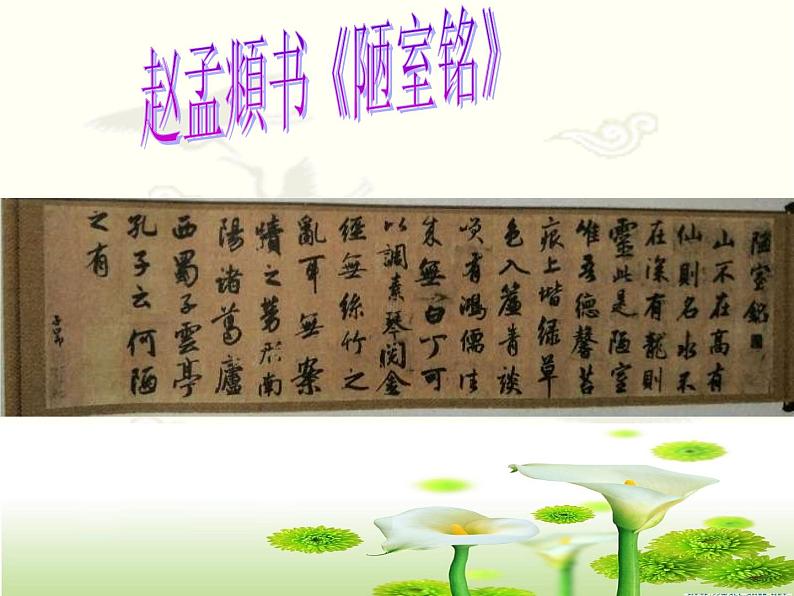 赵孟頫书《陋室铭》
陋室銘
山不在高有
仙則名水不
在深有龍則
靈此是陋室
惟吾德馨苔
痕上堦緑草
色入簾青談
笑有鴻儒往
來無白丁可
以調素琴閱金
經無絲竹之
亂耳無案
牘之勞形南
陽諸葛廬
西蜀子雲亭
孔子云何陋
之有
子昂